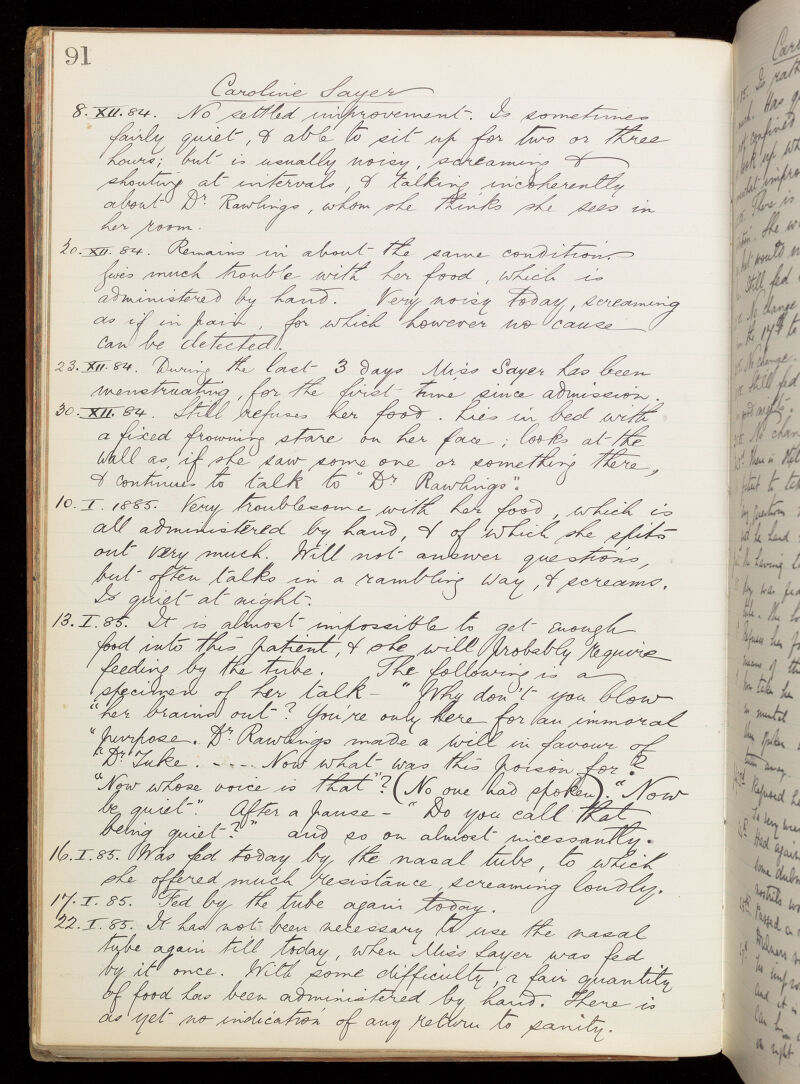 91
Caroline Sayer
8. XII. 84. No settled improvement. Is sometimes
fairly quiet, & able to sit up for two or three
hours; but is usually noisy, screaming &
shouting at intervals, & talking incoherently
about Dr. Rawlings, whom she thinks she sees in
her room.
20. XII. 84. Remains in about the same condition.
Gives much trouble with her food, which is
administered by hand. Very noisy today, screaming
as if in pain, for which however no cause
can be detected.
23. XII. 84. During the last 3 days Miss Sayer has been
menstruating, for the first time since admission.
30. XII. 84. Still refuses her food. Lies in bed with
a fixed frowning stare on her face; looks at the
wall as if she saw some one or something there,
& continues to talk to "Dr Rawlings".
10. I. 1885. Very troublesome with her food, which is
all administered by hand, & of which she spits
out very much. Will not answer questions,
but often talks in a rambling way, & screams.
Is quiet at night.
13. I. 85. It is almost impossible to get enough
food into this patient, & she will probably require
feeding by the tube. The following is a
specimen of her talk - "Why don't you blow
"her brains out? You're only here for an immoral
"purpose. Dr. Rawlings made a will in favour of
"Dr Tuke. .... Now what was this poison for?
"Now whose voice is that"? (No one had spoken). "Now
be quiet." After a pause - "Do you call that
being quiet?" and so on almost incessantly.
16. I. 85. Was fed today by the nasal tube, to which
she offered much resistance, screaming loudly.
17. I. 85. Fed by the tube again today.
22. I. 85. It has not been necessary to use the nasal
tube again till today, when Miss Sayer was fed
by it once. With some difficulty, a fair quantity
of food has been administered by hand. There is
as yet no indication of any return to sanity.